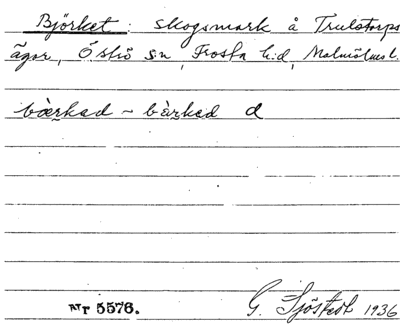 Björket: skogsmark å Trulstorps
ägor, Öströ sn, Frosta hd, Malmöhus l.
bœrkəd ~ bàrkəd d
Nr 5576. G. Sjöstedt 1936